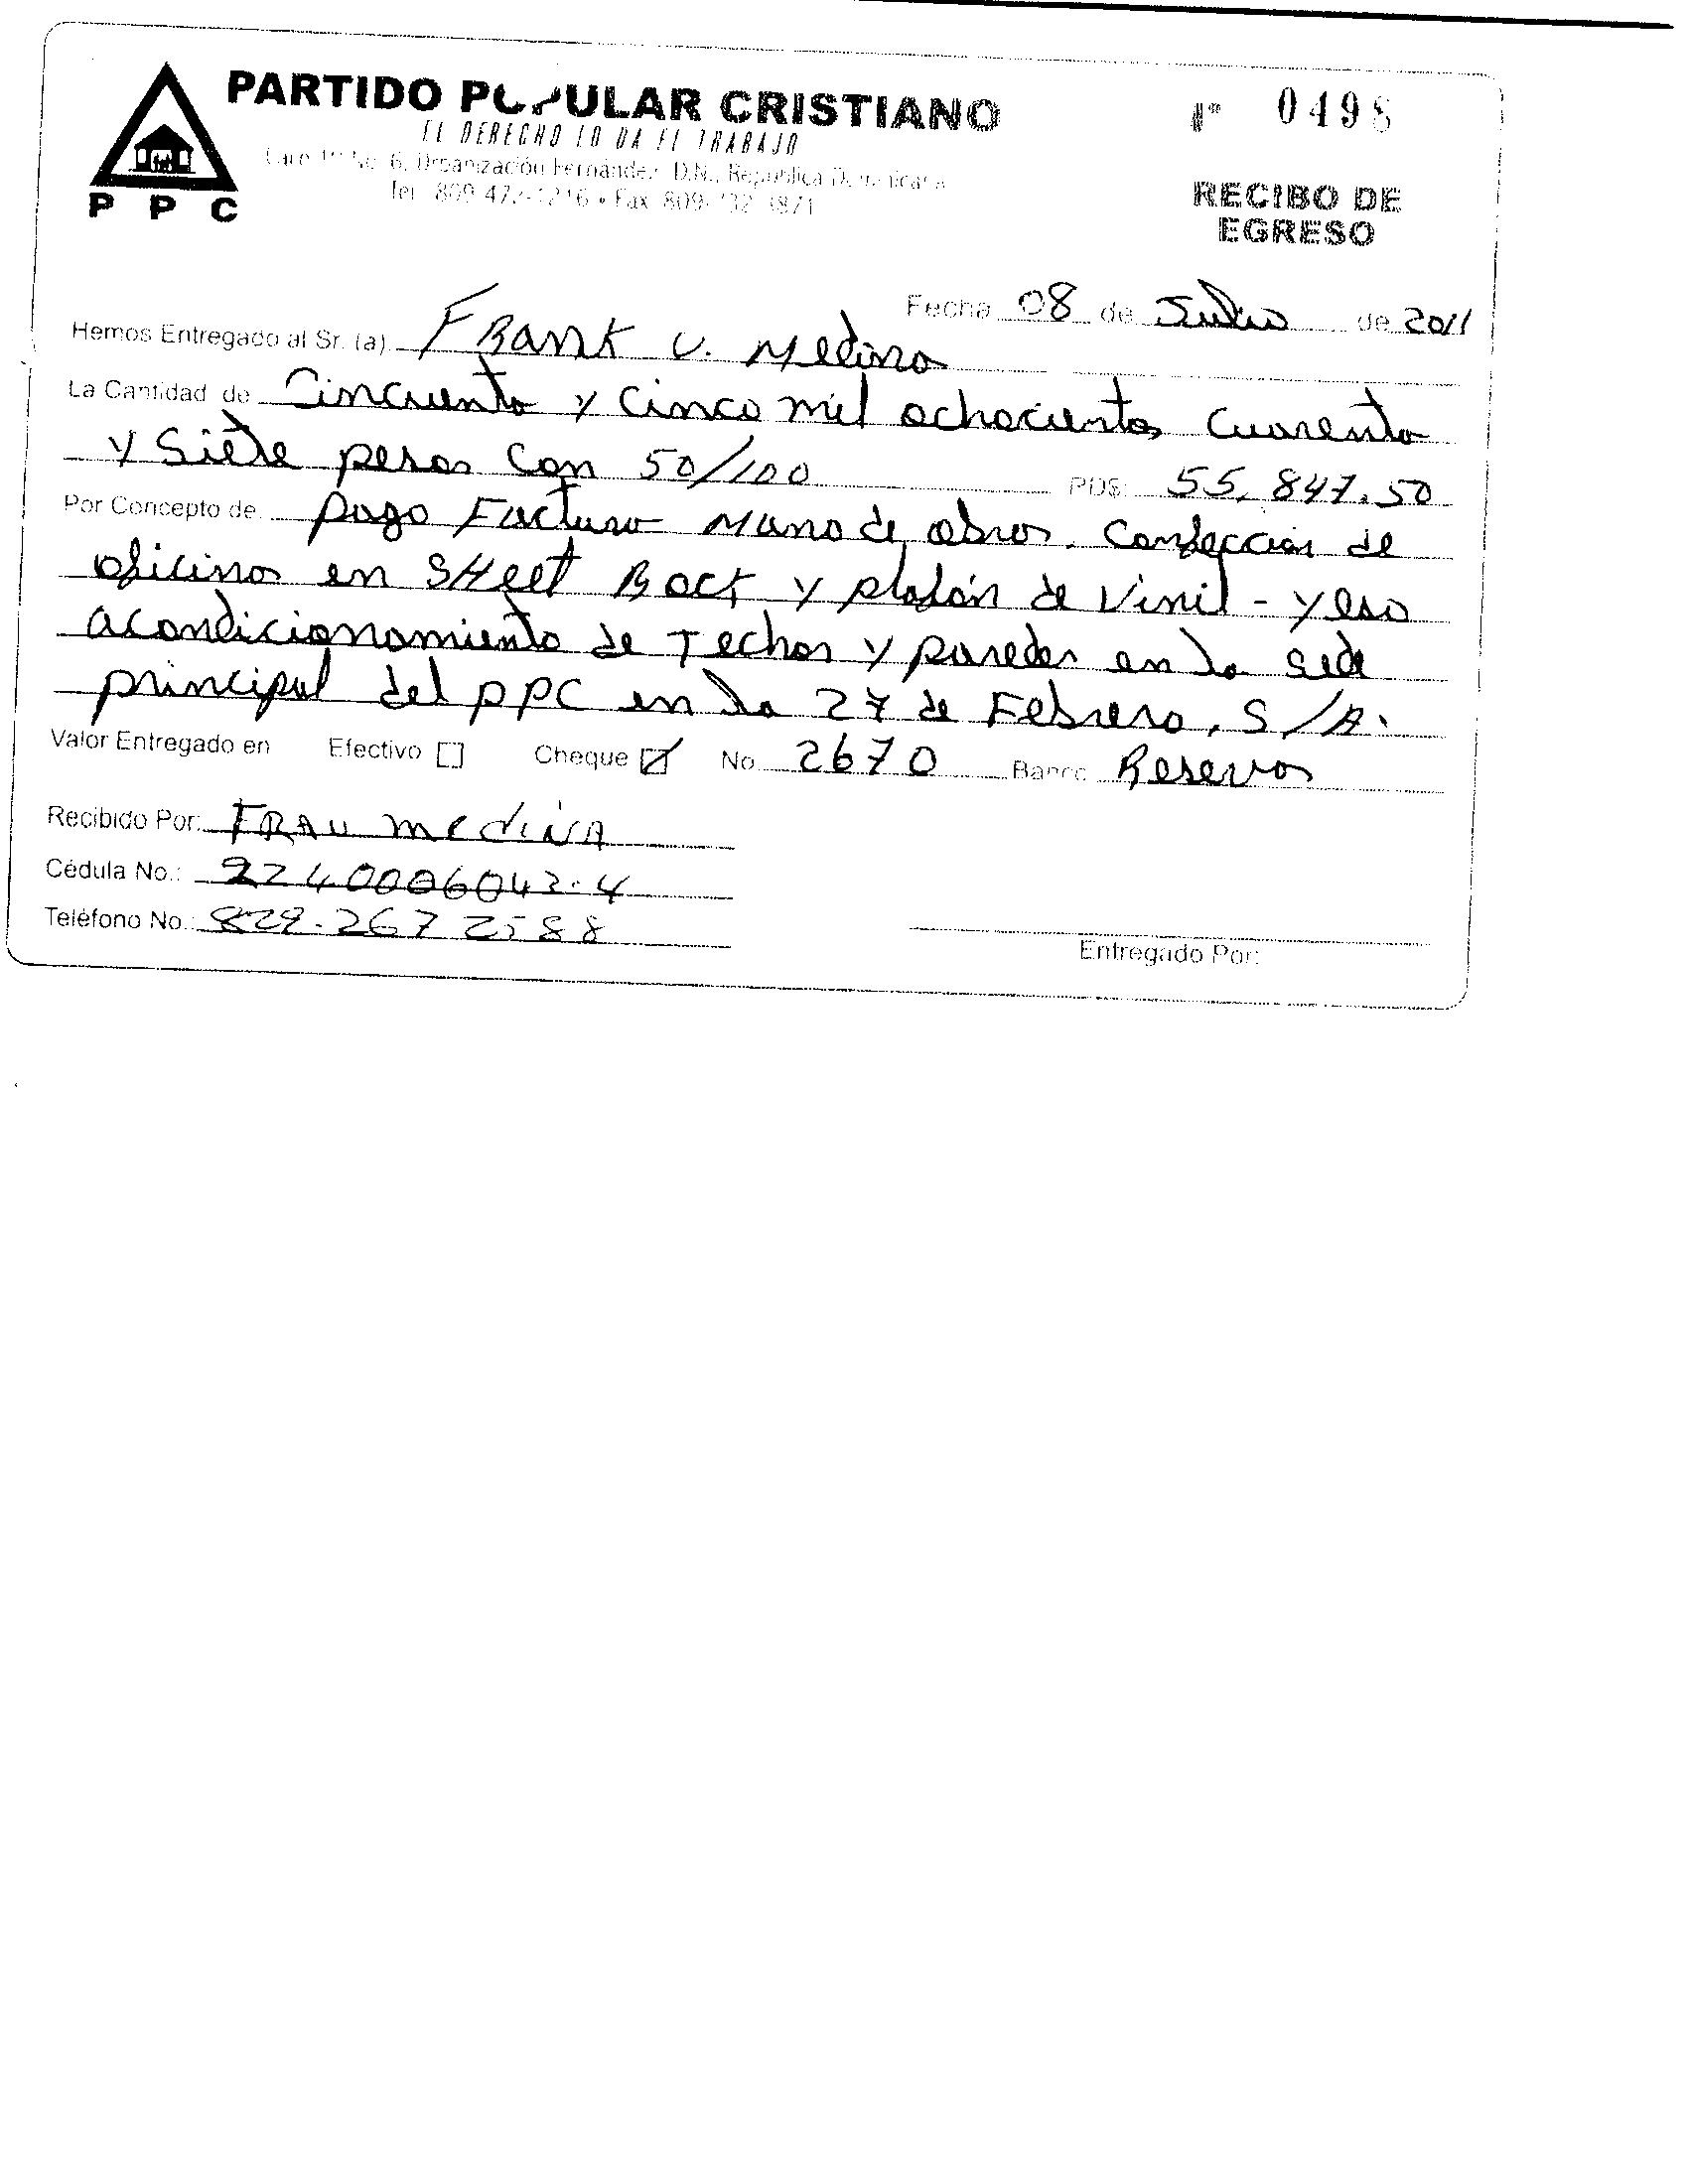 PARTIDO POPULAR CRISTIANO
Nº 0498
EL DERECHO LO DA EL TRABAJO
No. 6, Urbanización Fernández, D.N., República Dominicana
P P C
RECIBO DE
EGRESO
Fecha 08 de Julio de 2011
Hemos Entregado al Sr. (a) Frank U. Medina
La Cantidad de Cincuenta y Cinco mil ochocientos Cuarenta
y Siete pesos Con 50/100 RD$: 55,847.50
Por Concepto de: pago Factura Mano de obra. Confeccion de
oficinas en SHeet Rock y plafón de Vinil - yeso
acondicionamiento de Techos y paredes en la Sede
principal del PPC en la 27 de Febrero, S/A.
Valor Entregado en Efectivo Cheque No. 2670 Banco Reservas
Recibido Por: FRAU medina
Cédula No.: 2240006042-4
Teléfono No.: 829-267 2588
Entregado Por: